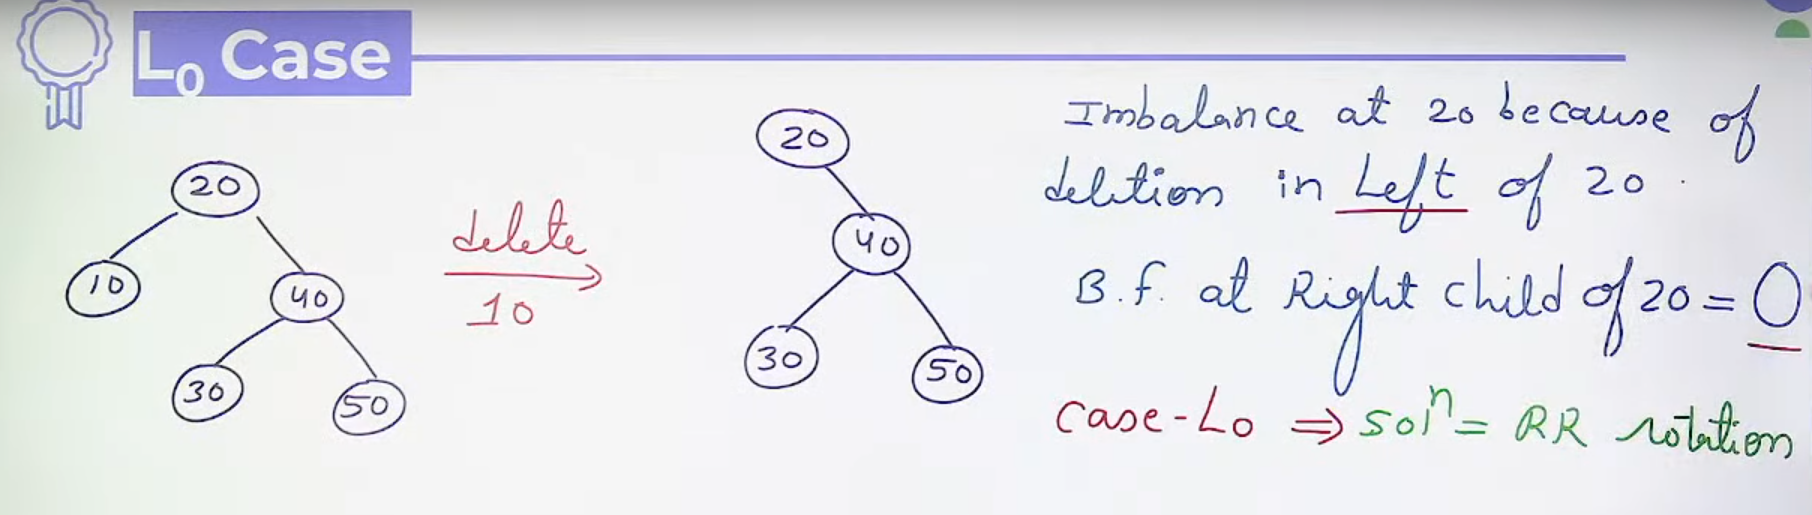 L₀ Case
20
10
40
30
50
delete
10
20
40
30
50
Imbalance at 20 because of
deletion in Left of 20.
B.f. at Right child of 20 = 0
Case-L0 ⇒ solⁿ = RR rotation